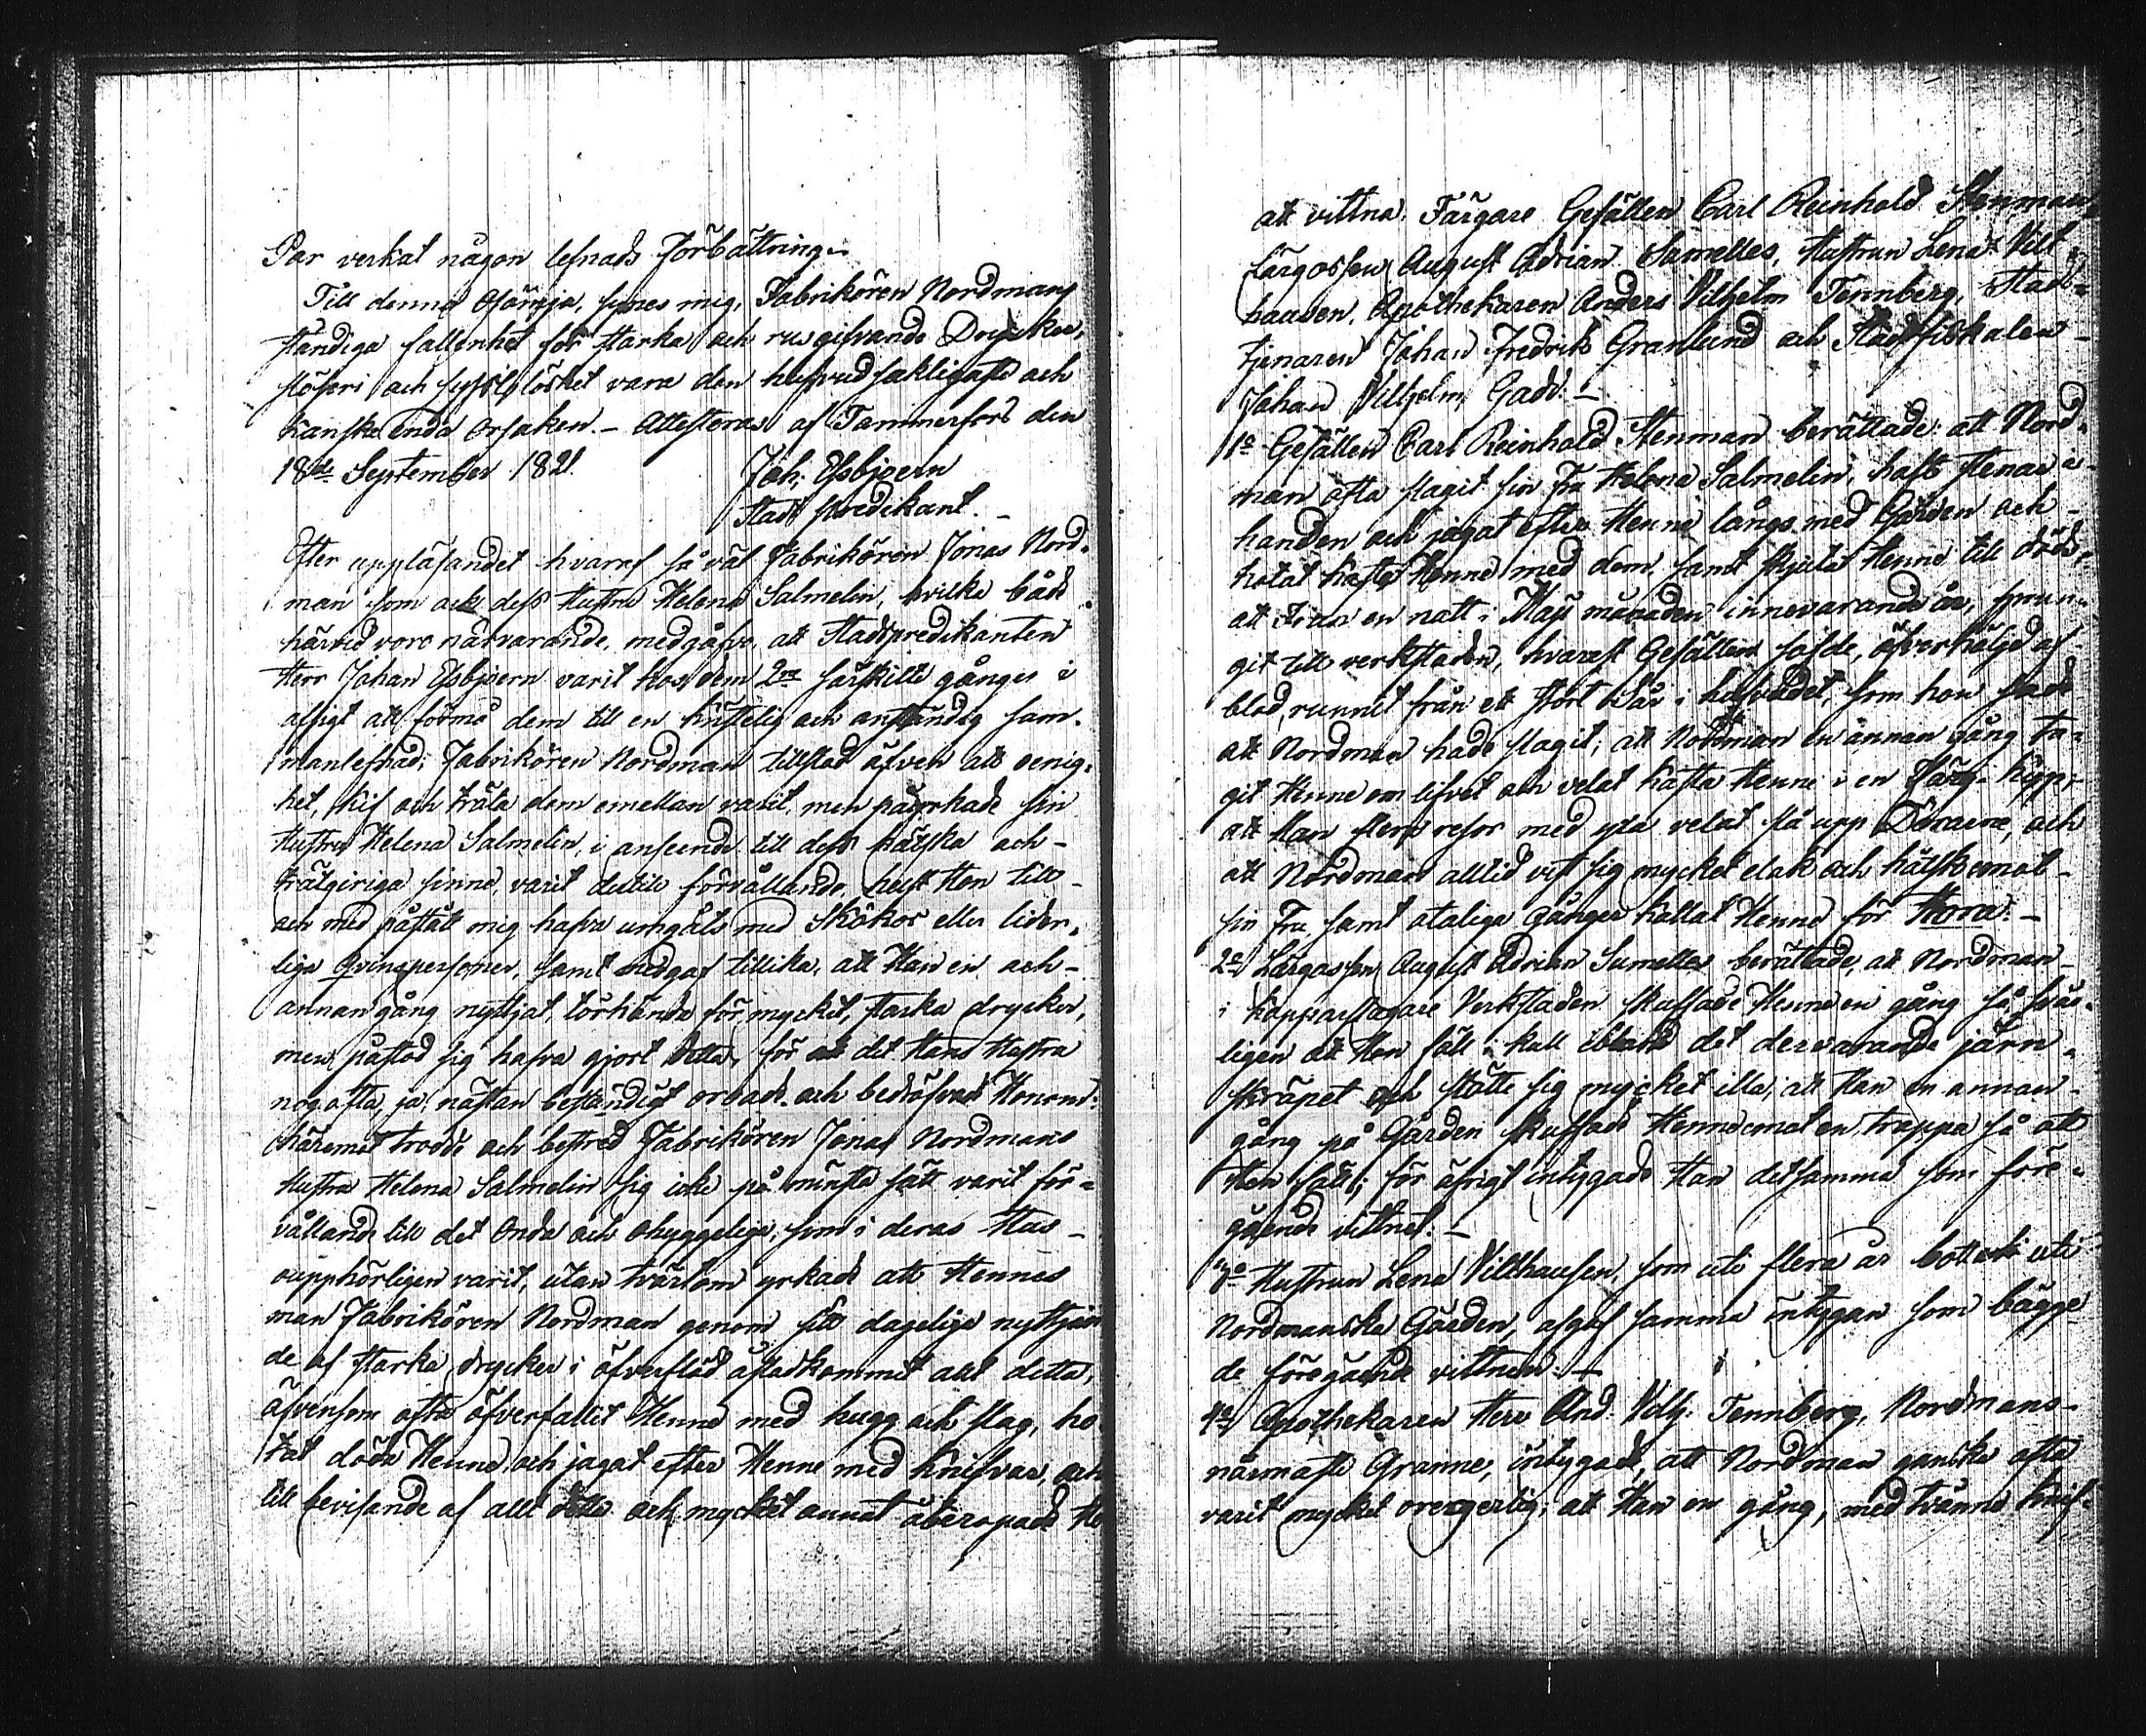 Par verkat någon lefnads förbättring.
Till denna Osämja, synes mig, Fabrikören Nordmans
ständiga fallenhet för starka och rusgifvande Drycker,
slöseri och sysslolöshet vara den hufvudsakligaste och
kanske enda orsaken. – Attesteras af Tammerfors den
18de September 1821. Joh: Essbjoern
Stads Predikant. –
Efter uppläsandet hvaraf så väl Fabrikören Jonas Nord-
man som ock dess Hustru Helena Salmelin, hvilka båda
härvid voro närvarande, medgåfvo, att Stadspredikanten
Herr Johan Essbjoern varit hos dem 2ne särskilte gånger i
afsigt att förmå dem till en kristelig och anständig sam-
manlefnad; Fabrikören Nordman tillstod äfven att oenig-
het, kif och träta dem emellan varit, men påyrkade sin
Hustru Helena Salmelin, i anseende till dess hätska och –
trätgiriga sinne, varit dertill förvållande, helst Hon titt –
och med påstått mig hafva umgåts med Skökor eller lider-
liga Qvinspersoner, samt medgaf tillika, att Han en och –
annan gång nyttjat, törhända för mycket, starka drycker,
men påstod sig hafva gjort detta, för att det Hans Hustru
nog ofta, ja, nästan beständigt oroade och bedröfvade Honom:
häremot trodde och bestred Fabrikören Jonas Nordmans
Hustru Helena Salmelin sig icke på minsta sätt varit för-
vållande till det Onda och Ohyggeliga, som i deras Hus –
oupphörligen varit, utan tvärtom yrkade att Hennes
man Fabrikören Nordman genom sitt dageliga nyttjan
de af starka drycker i öfverflöd åstadkommit allt detta,
äfvensom ofta öfverfallit Henne med hugg och slag, ho
tat döda Henne, och jagat efter Henne med Knifvar, och
till bevisande af allt detta och mycket annat åberopade Ho
att vittna. Färgare Gesällen Carl Reinhold Stenman,
Färgossen August Adrian Sumelles, Hustrun Lena Vilt-
hausen, Apothekaren Anders Vilhelm Tennberg, Stads-
tjenaren Johan Fredrik Granlund och Stadsfiskalen –
Johan Vilhelm Gadd. –
1o Gesällen Carl Reinhold Stenman berättade: att Nord-
man ofta slagit sin Fru Helena Salmelin, haft stenar i
handen och jagat efter Henne långs med Gården och –
hotat kasta Henne med dem, samt skjuta Henne till döds,
att Frun en natt i Maji månaden innevarande år, sprun-
git till verkstaden, hvarest Gesällen sofde, öfverhöljd af
blod, runnit från ett stort Sår i hufvudet, som hon sade
att Nordman hade slagit; att Nordman en annan gång ta-
git Henne om lifvet och velat kasta Henne i en Färg-Kyp,
att Han flera resor med yxa velat slå upp Dörarne, och
att Nordman alltid vist sig mycket elak och hätsk emot –
sin Fru, samt otaliga gånger kallat Henne för Hora. –
2o Färgossen August Adrian Sumelles berättade, at Nordman
i Kopparslagare Verkstaden skuffade Henne en gång så svår-
ligen att Hon föll i kull ibland det dervarande järn-
skräpet och stötte sig mycket illa; att Han en annan –
gång på Gården skuffade Henne emot en trappa så att
Hon föll; för öfrigt intygade Han detsamma som före-
gående vittnet. –
3o Hustrun Lena Vilthausen, som uti flera år bott uti
Nordmanska Gården, afgaf samma intygan som bägge
de föregående vittnen. –
4o Apothekaren Herr And: Vilh: Tennberg, Nordmans –
närmaste Granne, intygade, att Nordman ganska ofta
varit mycket oregerlig; att Han en gång, med tvänne knif-